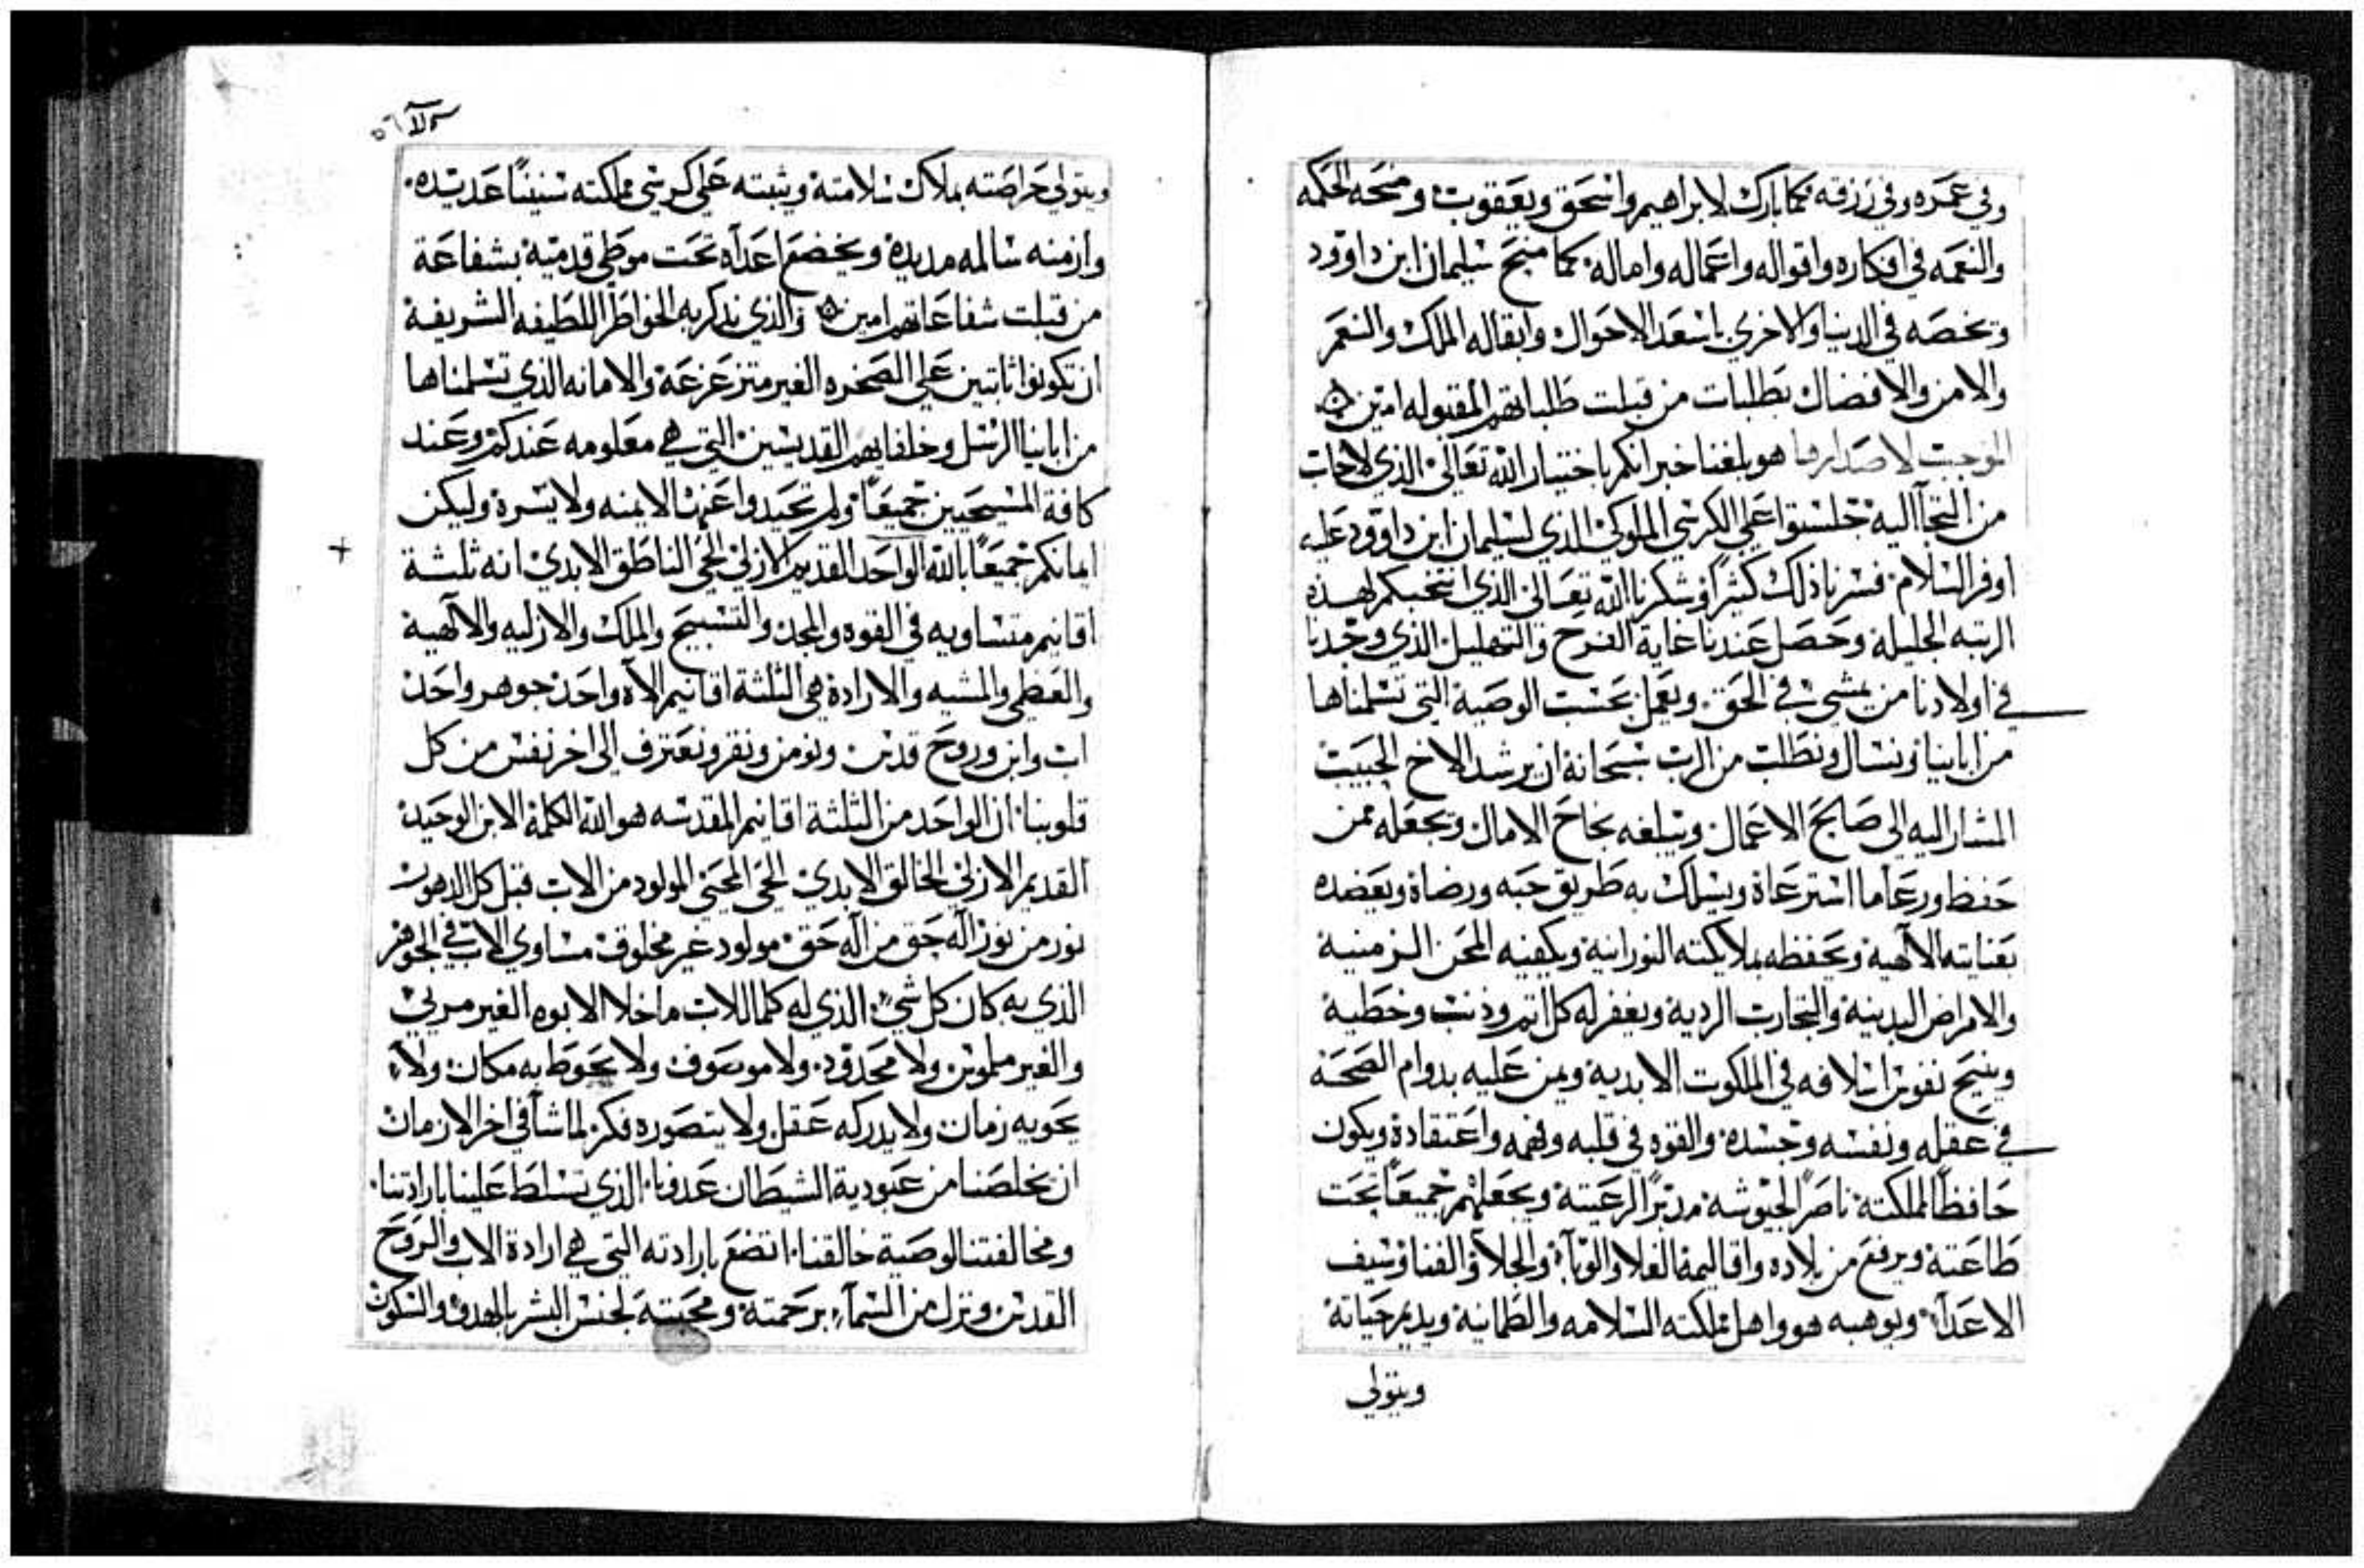 وفي عمره وفي رزقه كما بارك لابراهيم واسحق ويعقوب ومنحه الحكمه
والنعمه في افكاره واقواله واعماله واماله كما منح سليمان ابن داوود
وتخصه في الدنيا والاخري باسعد الاحوال وابقاله الملك والنعم
والامن والافضال بطلبات من قبلت طلباتهم المقبوله امين
الموجب لاصدارها هو بلغنا خبر انكم باختيار الله تعالى الذي لاخاب
من التجآ اليه جلستوا علي الكرسي الملوكي الذي لسليمان ابن داوود عليه
اوفر السلام فسرنا ذلك كثيراً وشكرنا الله تعالى الذي انتخبكم لهذه
الرتبه الجليلة وحصل عندنا غاية الفرح والتهليل الذي وجدنا
في اولادنا من يمشي في الحق ويعمل بحسب الوصية التي تسلمناها
من ابائنا ونسال ونطلب من الرب سبحانة ان يرشد الاخ الحبيب
المشار اليه الى صالح الاعمال ويبلغه نجاح الامال ويجعله ممن
حفظ ورعا ما استرعاة ويسلك به طريق حبه ورضاة ويعضده
بعنايته الالهية ويحفظه بملايكته النورانية ويكفيه المحن الزمنية
والامراض البدينية والتجارب الردية ويغفر له كل اثم وذنب وخطية
وينيح نفوس اسلافه في الملكوت الابدية ويمن عليه بدوام الصحة
في عقله ونفسه وجسدة والقوه في قلبه وفهمه واعتقادة ويكون
حافظاً لملكتة ناصراً لجيوشة مدبراً لرعيتة ويجعلهم جميعاً تحت
طاعتة ويرفع من بلاده واقاليمة الغلا والوبآ والجلا والفنا وسيف
الاعدآ ويوهبه هو واهل مملكته السلامه والطمانية ويديم حياتة
ويتولي
٥٦
ويتولي حراصته بملاك سلامتة ويثبته علي كرسي مملكته سنيناً عديده
وازمنه سالمه مديدة ويخضع اعدآه تحت موطي قدمية بشفاعة
من قبلت شفاعاتهم امين والذي نذكر به الخواطر اللطيفه الشريفة
ان تكونوا ثابتين علي الصخره الغير متزعزعة والامانه الذي تسلمناها
من ابائنا الرسل وخلفايهم القديسين التي هي معلومه عندكم وعند
كافة المسيحيين جميعاً ولم تحيدوا عنها لايمنه ولا يسرة وليكن
ايمانكم جميعاً بالله الواحد القديم الازلي الحي الناطق الابدي انه ثلثة
اقانيم متساويه في القوه والمجد والتسبيح والملك والازليه والالهية
والعظمي والمشيه والارادة هي الثلثة اقانيم الآه واحد جوهر واحد
اب وابن وروح قدس ونومن ونقر ونعترف الى اخر نفس من كل
قلوبنا ان الواحد من الثلثة اقانيم المقدسه هو الله الكلمة الابن الوحيد
القديم الازلي الخالق الابدي الحي المحيي المولود من الاب قبل كل الدهور
نور من نور اله حق من اله حق مولود غير مخلوق مساوي الاب في الجوهر
الذي به كان كل شي الذي له كلما للاب ماخلا الابوه الغير مريي
والغير ملموس ولا محدود ولا موصوف ولا يحوط به مكان ولا
يحويه زمان ولا يدركه عقل ولا يتصوره فكر لما شآ في اخر الازمان
ان يخلصنا من عبودية الشيطان عدونا الذي تسلط علينا بارادتنا
ومخالفتنا لوصية خالقنا اتضع بارادته التي هي ارادة الاب والروح
القدس ونزل من السمآ برحمتة ومحبتة لجنس البشر بالهدو والسكون